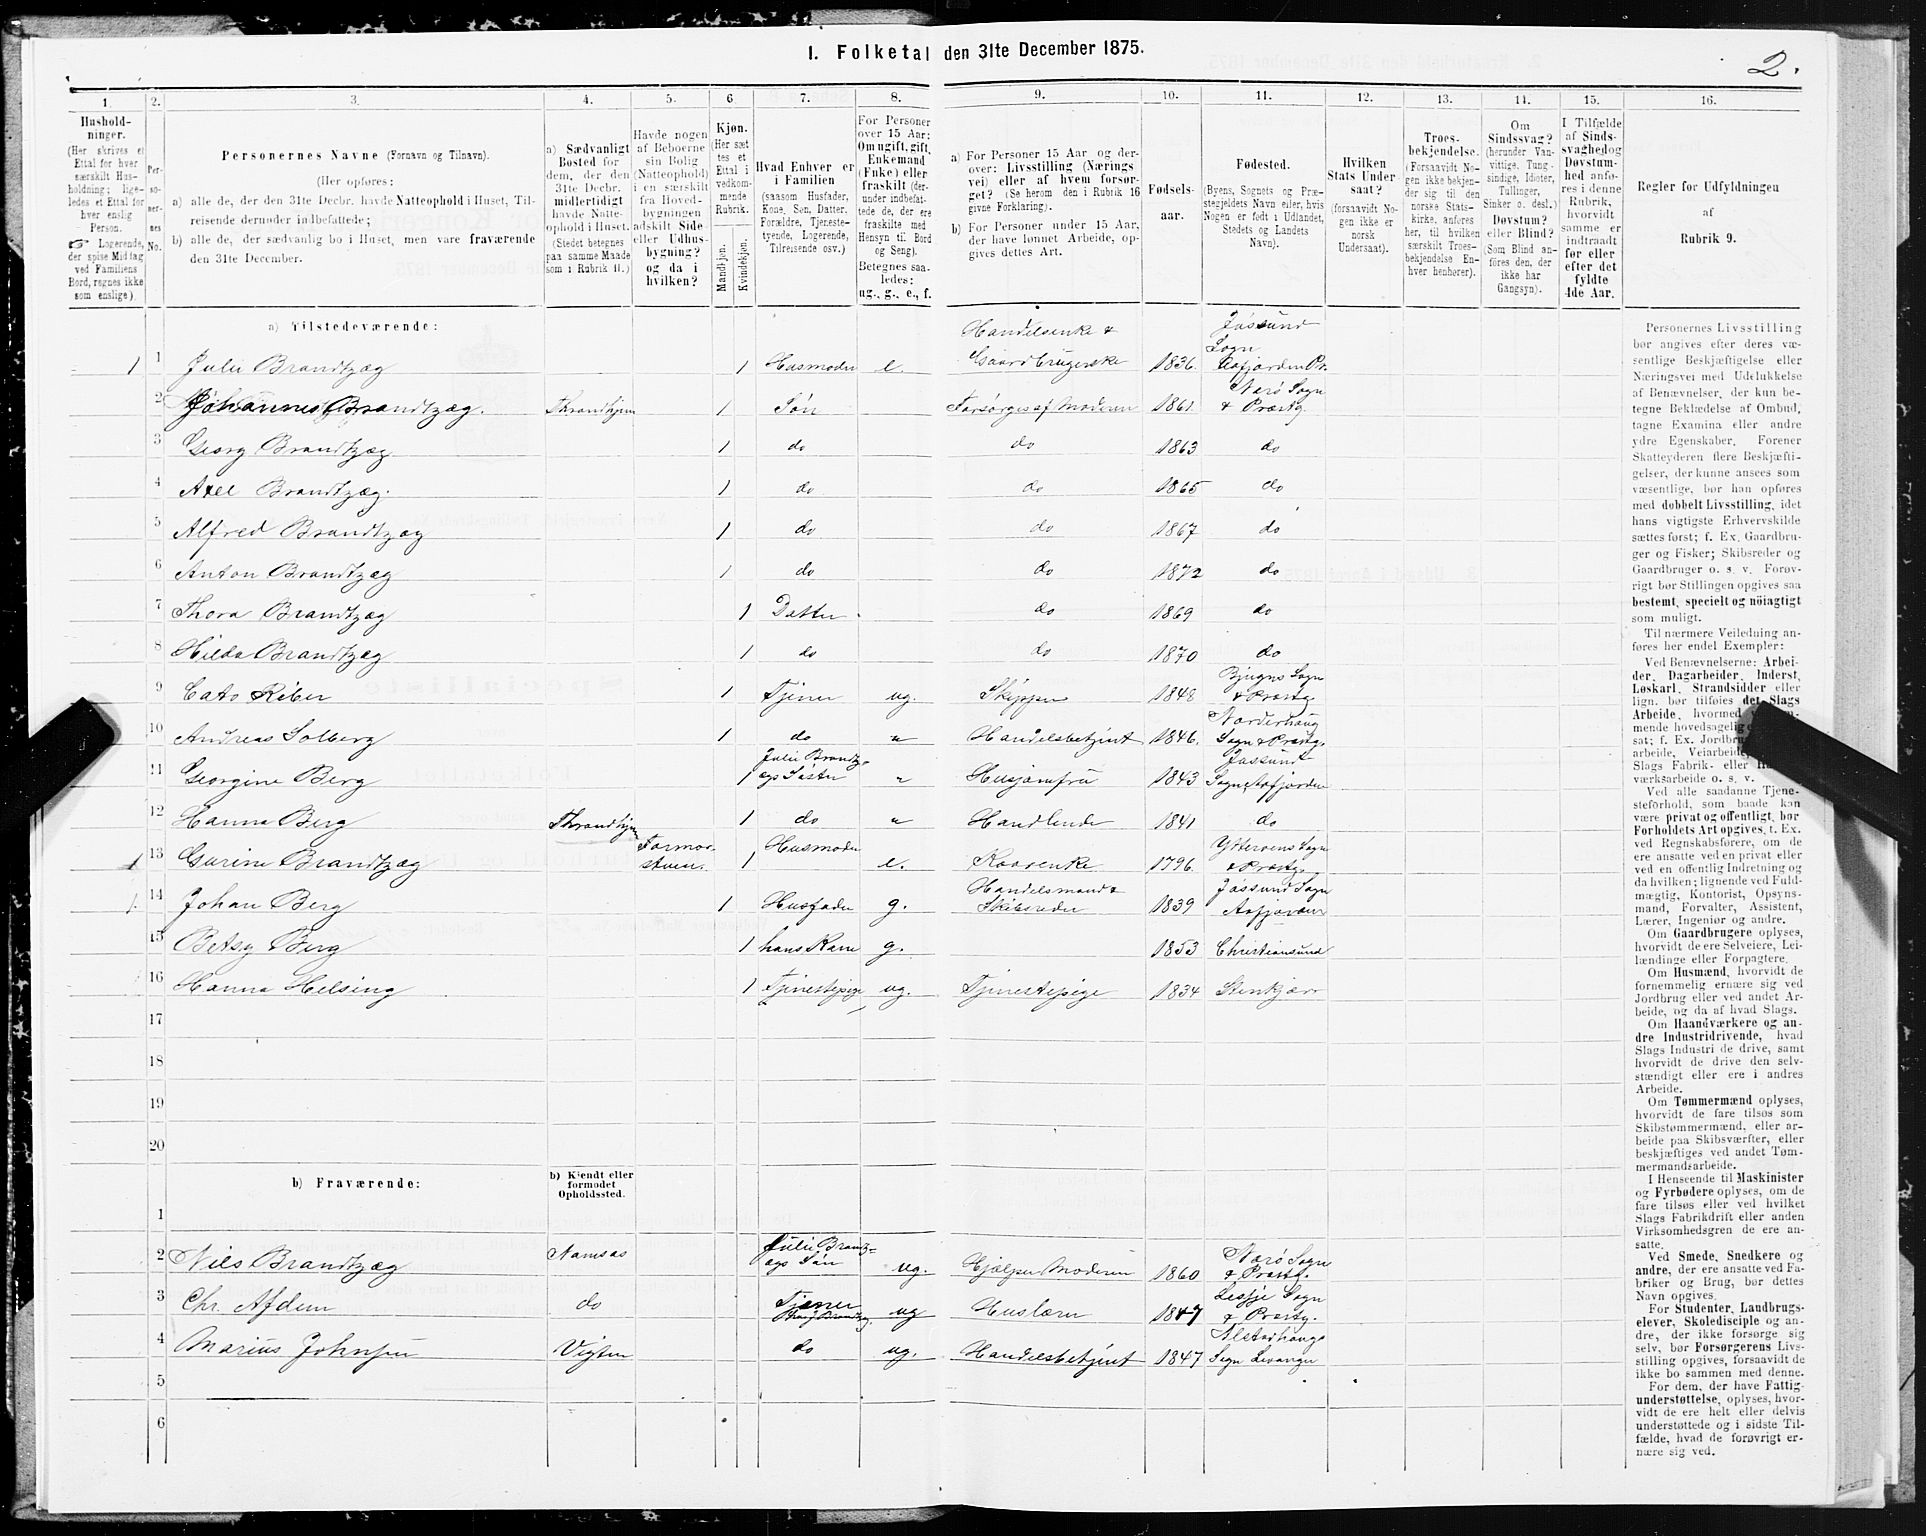 1. Folketal den 31te December 1875.
2.
1.
Hushold-
ninger.
(Her skrives et
Ettal for hver
særskilt Hus-
holdning; lige-
ledes et Ettal for
hver enslig
Person.
☞ Logerende,
der spise Middag
ved Familiens
Bord, regnes ikke
som enslige).
2.
Per-
so-
ner-
nes
No.
3.
Personernes Navne (Fornavn og Tilnavn).
(Her opføres:
a) alle de, der den 31te Decbr. havde Natteophold i Huset, Til-
reisende derunder indbefattede;
b) alle de, der sædvanlig bo i Huset, men vare fraværende
den 31te December.
4.
a) Sædvanligt
Bosted for
dem, der den
31te Decbr.
midlertidigt
havde Natte-
ophold i Huset.
(Stedet betegnes
paa samme Maade
som i Rubrik 11.)
5.
Havde nogen
af Beboerne
sin Bolig
(Natteophold)
i en særskilt
fra Hoved-
bygningen
adskilt Side-
eller Udhus-
bygning?
og da i
hvilken?
6
Kjøn.
(Her sæt-
tes et
Ettal i
vedkom-
mende
Rubrik.
Mandkjøn.
Kvindekjøn.
7.
Hvad Enhver er
i Familien
(saasom Husfader,
Kone, Søn, Datter,
Forældre, Tjeneste-
tyende, Logerende,
Tilreisende osv.)
8.
For Personer
over 15 Aar:
Om ugift, gift,
Enkemand
(Enke) eller
fraskilt (der-
under indbefat-
tede de, der ere
fraskilte med
Hensyn til Bord
og Seng).
Betegnes saa-
ledes:
ug., g., e., f.
9.
a) For Personer 15 Aar og der-
over: Livsstilling (Nærings-
vei) eller af hvem forsør-
get? (Se herom den i Rubrik 16
givne Forklaring).
b) For Personer under 15 Aar,
der have lønnet Arbeide, op-
gives dettes Art.
10.
Fødsels-
aar.
11.
Fødested.
(Byens, Sognets og Præ-
stegjeldets Navn eller, hvis
Nogen er født i Udlandet,
Stedets og Landets
Navn).
12.
Hvilken
Stats Under-
saat?
(forsaavidt No-
gen ikke er
norsk
Undersaat).
13.
Troes-
bekjendelse.
(Forsaavidt No-
gen ikke bekjen-
der sig til den
norske Stats-
kirke, anføres
her, til hvilken
særskilt Troes-
bekjendelse En-
hver henhører).
14.
Om
Sindssvag?
(herunder Van-
vittige, Tung-
sindige, Idioter,
Tullinger,
Sinker o. desl.)
Døvstum?
eller Blind?
(Som Blind an-
føres den, der
ikke har
Gangsyn).
15.
I Tilfælde
af Sinds-
svaghed og
Døvstum-
hed anfø-
res i denne
Rubrik,
hvorvidt
samme er
indtraadt
før eller
efter det
fyldte
4de Aar.
16.
Regler for Udfyldningen
af
Rubrik 9.
a) Tilstedeværende:
1 1 Julie Brandtzæg 1 Husmoder e. Handelsenke & Gaardbrugerske 1836. Jøssund Sogn Aafjorden Pr.
2 Johannes Brandtzæg. Throndhjem 1 Søn Forsørges af Moderen 1861. Nærø Sogn & Præstg.
3 Georg Brandtzæg 1 do do 1863 do
4 Axel Brandtzæg. 1 do do 1865 do
5 Alfred Brandtzæg 1 do do 1867 do
6 Anton Brandtzæg 1 do do 1872 do
7 Thora Brandtzæg 1 Datter do 1869 do
8 Hilda Brandtzæg 1 do do 1870 do
9 Cato Riber 1 Tjener ug. Skipper 1848 Bjugns Sogn & Præstg.
10 Andreas Solberg 1 do " Handelsbetjent 1846. Norderhaug Sogn & Præstg.
11 Georgine Berg 1 Julie Brandtz- ægs Søster " Husjomfru 1843 Jøssund Sogn Aafjorden
12 Hanna Berg Throndhjem 1 do " Handlende 1841 do
1 13 Gurine Brandtzæg Formor- stuen. 1 Husmoder e. Kaarenke 1796. Ytterøens Sogn & Præstg.
1. 14 Johan Berg 1 Husfader g. Handelsmand & Skibsreder 1839 Jøssund Sogn Aafjorden
15 Betsy Berg 1 hans Kone g. 1853 Christiansund
16 Hanna Helsing 1 Tjenestepige ug. Tjenestepige 1834 Stenkjær
17
18
19
20
b) Fraværende:
b) Kjendt eller
formodet
Opholdssted.
1
2 Nils Brandtzæg Namsos Julie Brandtz- ægs Søn ug. Hjælper Moderen 1860 Nærø Sogn & Præstg.
3 Chr. Afdem do Tjener hos J. Brandtzæg ug Huslærer 1847 Lesje Sogn & Præstg.
4 Marius Johnsen Vigten do ug. Handelsbetjent 1847 Alstadhaug Sogn Levanger
5
6
Personernes Livsstilling
bør angives efter deres væ-
sentlige Beskjæftigelse eller
Næringsvei med Udelukkelse
af Benævnelser, der kun be-
tegne Beklædelse af Ombud,
tagne Examina eller andre
ydre Egenskaber. Forener
Skatteyderen flere Beskjæfti-
gelser, der kunne ansees som
væsentlige, bør han opføres
med dobbelt Livsstilling, idet
hans vigtigste Erhvervskilde
sættes først; f. Ex. Gaardbru-
ger og Fisker; Skibsreder og
Gaardbruger o. s. v. Forøv-
rigt bør Stillingen opgives saa
bestemt, specielt og nöiagtigt
som muligt.
Til nærmere Veiledning an-
føres her endel Exempler:
Ved Benævnelserne: Arbei-
der, Dagarbeider, Inderst,
Løskarl, Strandsidder eller
lign. bør tilføies det Slags
Arbeide, hvormed
mende hovedsagelig
sat; f. Ex. Jordbru
arbeide, Veiarbeide,
Slags Fabrik- eller
værksarbeide o. s. v.
Ved alle saadanne Tjene-
steforhold, som baade kan
være privat og offentligt, bør
Forholdets Art opgives, t. Ex.
ved Regnskabsførere, om de
ere ansatte ved en privat eller
ved en offentlig Indretning og
da hvilken; lignende ved Fuld-
mægtig, Kontorist, Opsyns-
mand, Forvalter, Assistent,
Lærer, Ingeniør og andre.
Om Gaardbrugere oplyses,
hvorvidt de ere Selveiere, Lei-
lændinge eller Forpagtere.
Om Husmænd, hvorvidt de
fornemmelig ernære sig ved
Jordbrug eller ved andet Ar-
beide, og da af hvad Slags.
Om Haandværkere og an-
dre Industridrivende, hvad
Slags Industri de drive, samt
hvorvidt de drive den selv-
stændigt eller ere i andres
Arbeide.
Om Tømmermænd oplyses,
hvorvidt de fare tilsøs som
Skibstømmermænd, eller ar-
beide paa Skibsværfter, eller
beskjæftiges ved andet Tøm-
mermandsarbeide.
I Henseende til Maskinister
og Fyrbødere oplyses, om de
fare tilsøs eller ved hvilket
Slags Fabrikdrift eller anden
Virksomhedsgren de ere an-
satte.
Ved Smede, Snedkere og
andre, der ere ansatte ved Fa-
briker og Brug, bør dettes
Navn opgives.
For Studenter, Landbrugs-
elever, Skoledisciple og an-
dre, der ikke forsørge sig
selv, bør Forsørgerens Livs-
stilling opgives, forsaavidt de
ikke bo sammen med denne.
For dem, der have Fattig-
understøttelse, oplyses, hvor-
vidt de ere helt eller delvis
understøttede og i sidste Til-
fælde, hvad de forøvrigt er-
nære sig ved.